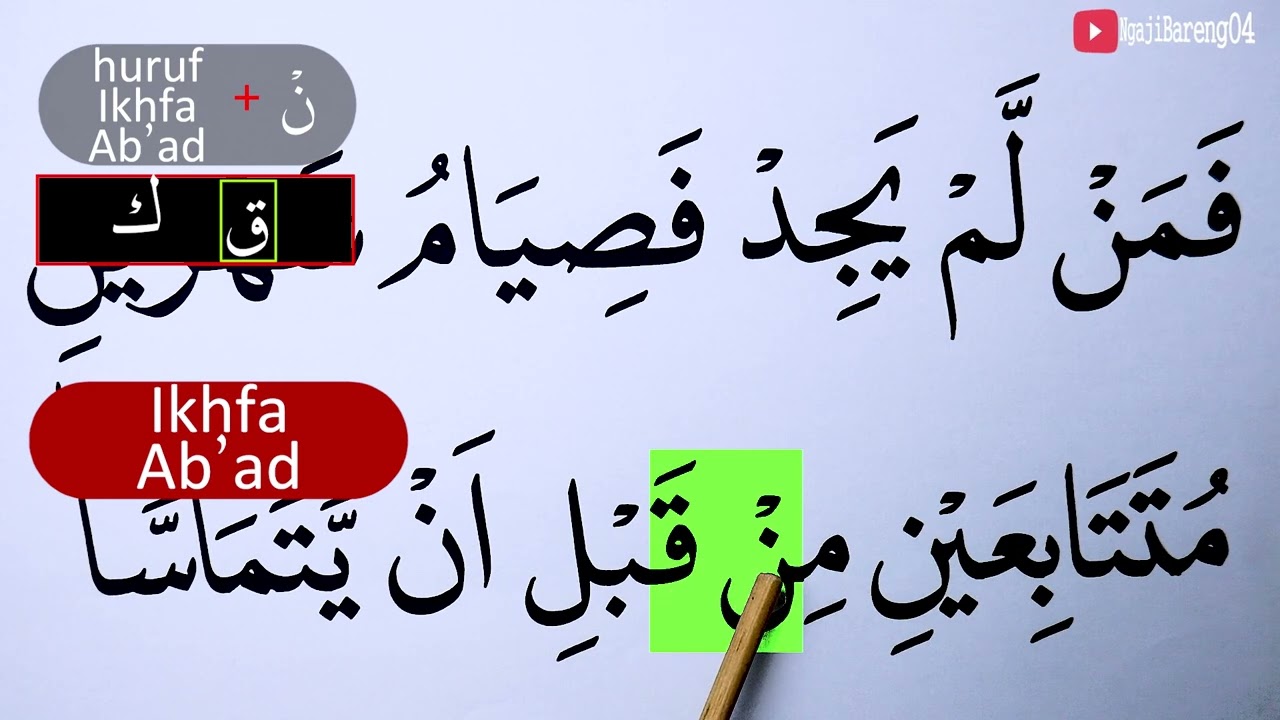 NgajiBareng04
huruf
Ikhfa
Ab’ad
+ نْ
ق ك
فَمَنْ لَّمْ يَجِدْ فَصِيَامُ
Ikhfa
Ab’ad
مُتَتَابِعَيْنِ مِنْ قَبْلِ اَنْ يَّتَمَاسَّا